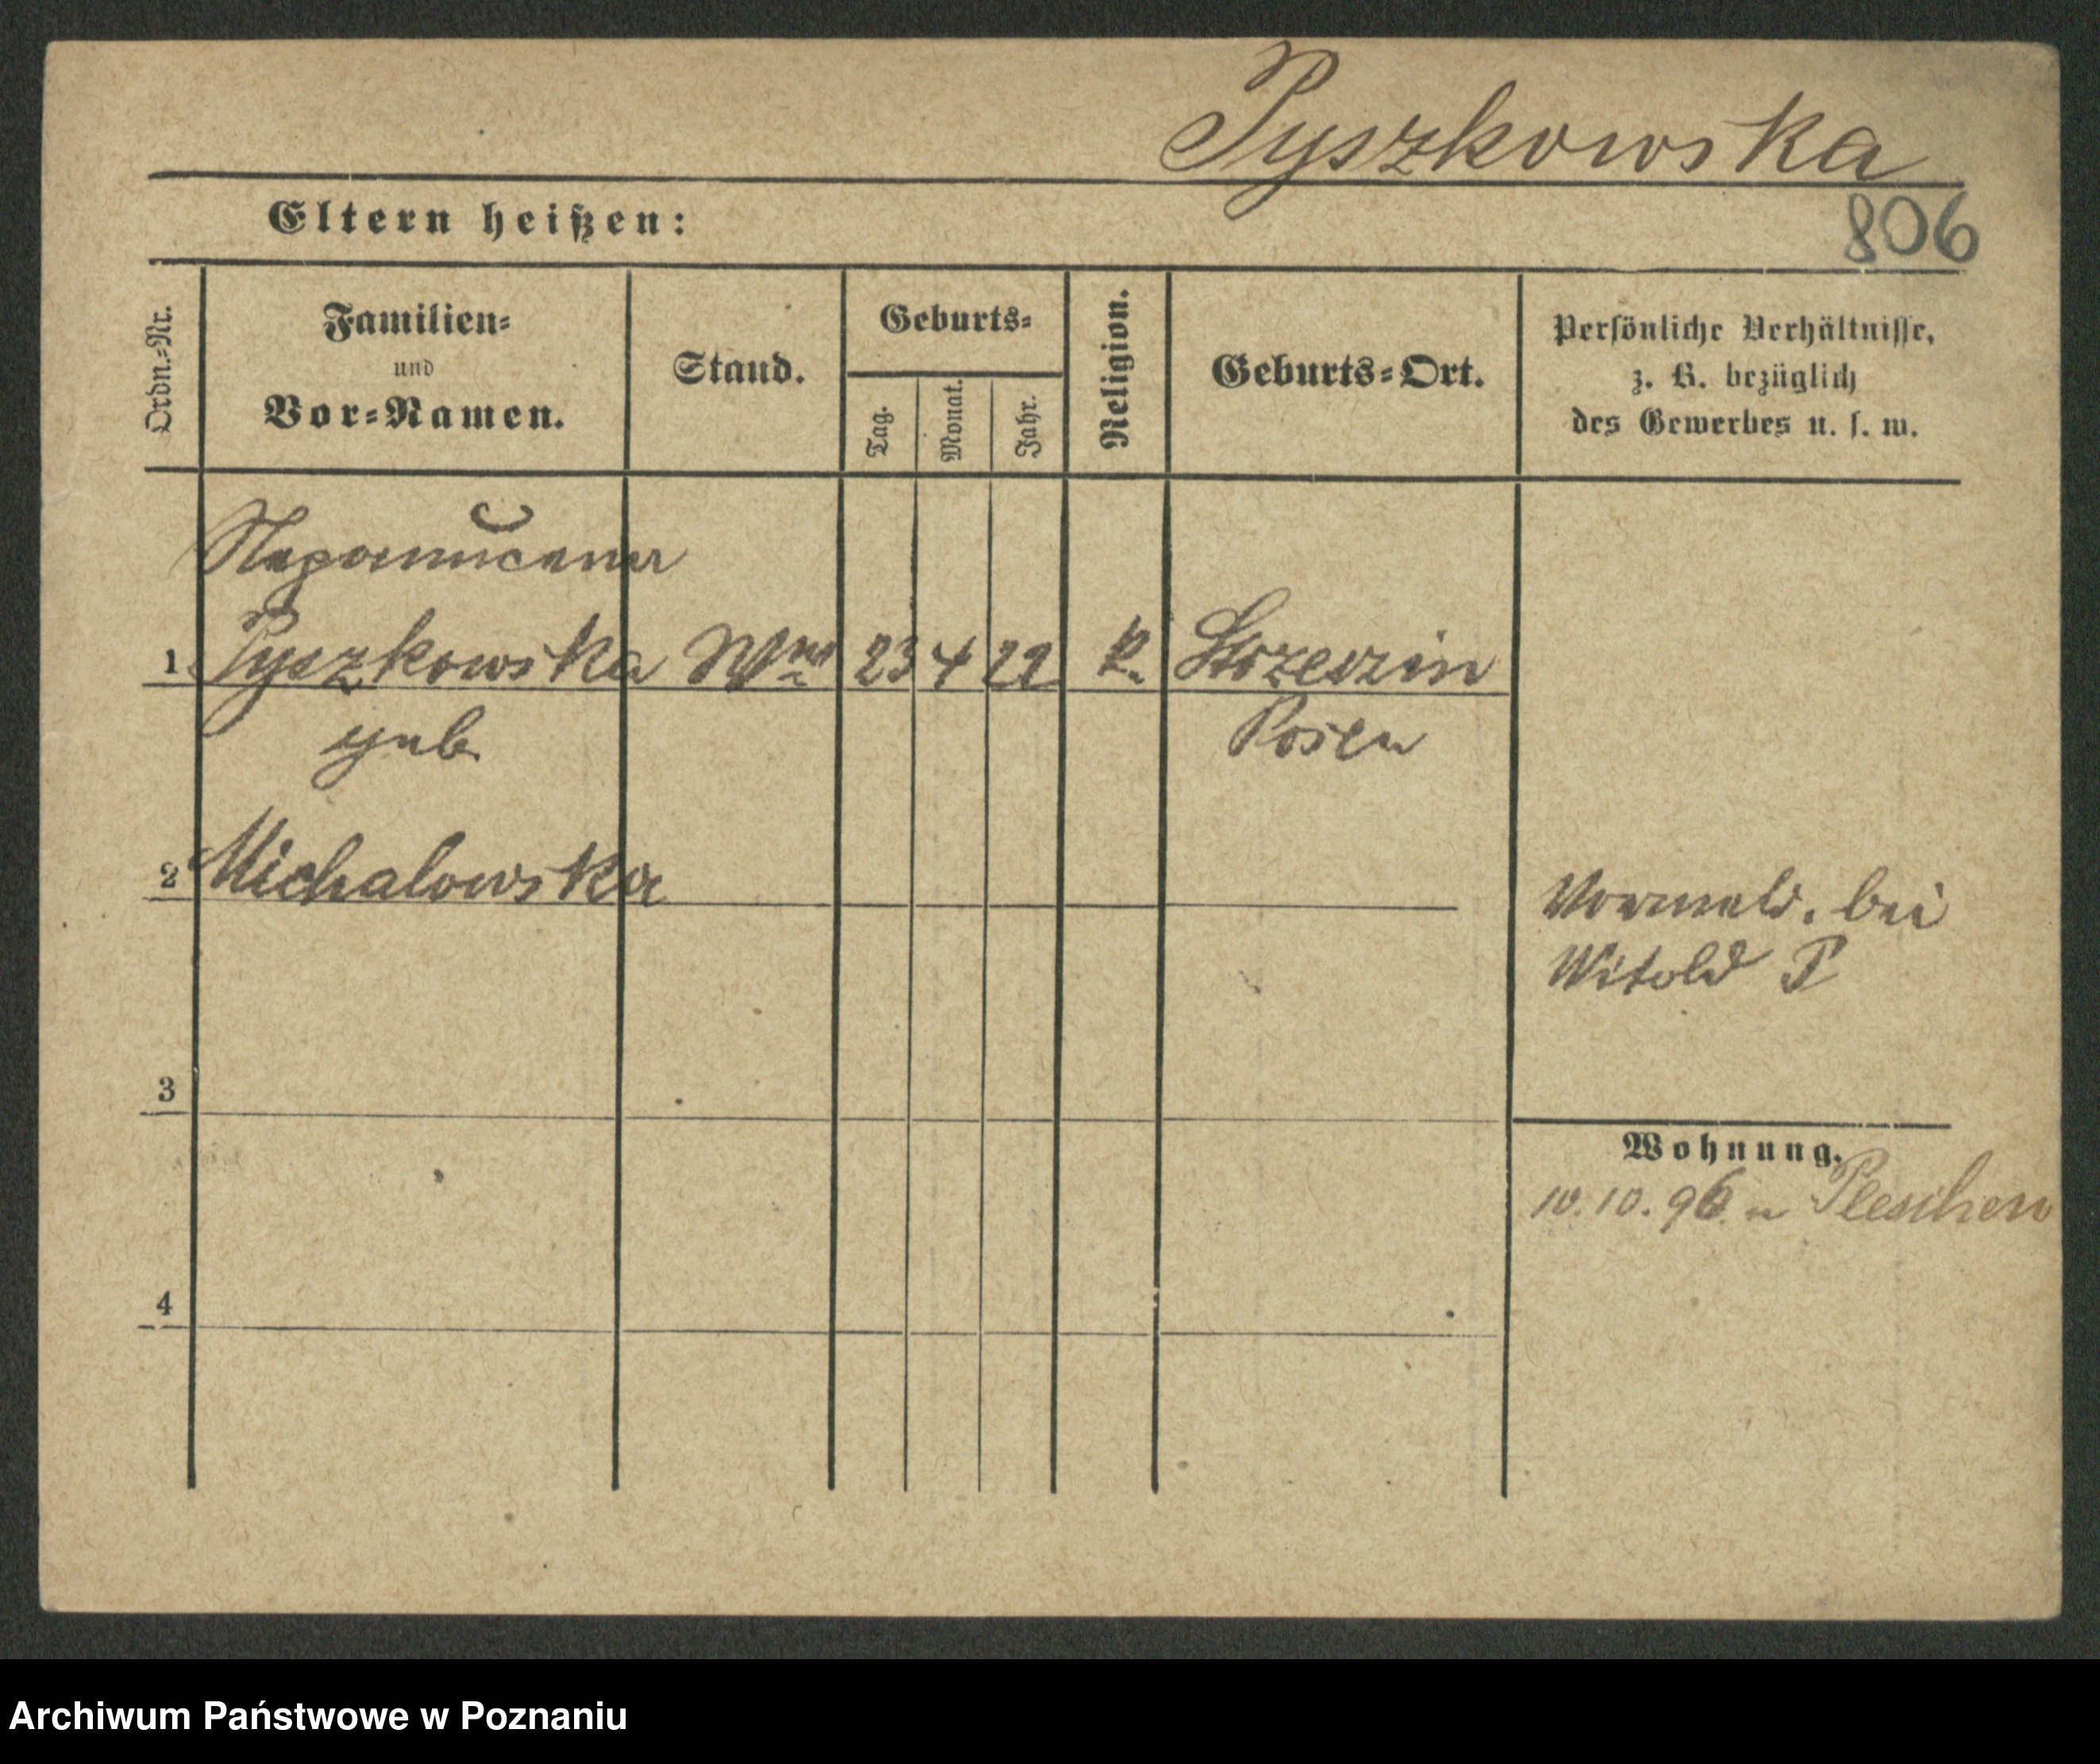 Pyszkowska
806
Eltern heißen:
Ordn.-Nr.
Familien-
und
Vor-Namen.
Stand.
Geburts-
Tag.
Monat.
Jahr.
Religion.
Geburts-Ort.
Persönliche Verhältnisse,
z. B. bezüglich
des Gewerbes u. s. w.
Nepomucena
1 Pyszkowska Wwe 23 4 22 k.
geb
Posen
2 Michalowska
bei
Witold P
3
Wohnung.
10.10.96. n Pleschen
4
Archiwum Państwowe w Poznaniu